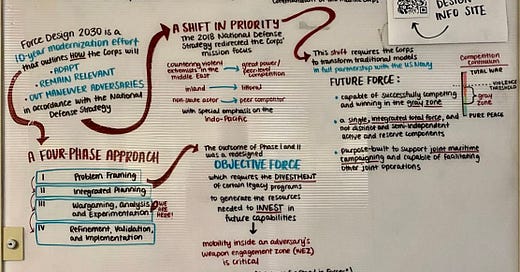 DESIGN
INFO SITE
Force Design 2030 is a
10-year modernization effort
that outlines HOW the Corps will
• ADAPT
• REMAIN RELEVANT
• OUT MANEUVER ADVERSARIES
in accordance with the National
Defense Strategy
A SHIFT IN PRIORITY
The 2018 National Defense
Strategy redirected the Corps'
mission focus
countering violent
extremists in the
Middle East
great power/
peer-level
competition
inland → littoral
non-state actor → peer competitor
with special emphasis on the
Indo-Pacific
This shift requires the Corps
to transform traditional models
in full partnership with the US Navy
FUTURE FORCE:
• capable of successfully competing
and winning in the gray zone
• a single, integrated total force, and
not distinct and semi-independent
active and reserve components
• purpose-built to support joint maritime
campaigning and capable of facilitating
other joint operations
Competition
Continuum
TOTAL WAR
VIOLENCE
THRESHOLD
gray
zone
PURE PEACE
A FOUR-PHASE APPROACH
I Problem Framing
II Integrated Planning
III Wargaming, Analysis
and Experimentation
WE
ARE
HERE!
IV Refinement, Validation,
and Implementation
The outcome of Phase I and II
was a redesigned
OBJECTIVE FORCE
which requires the DIVESTMENT
of certain legacy programs
to generate the resources
needed to INVEST in
future capabilities
mobility inside an adversary's
weapon engagement zone (WEZ)
is critical